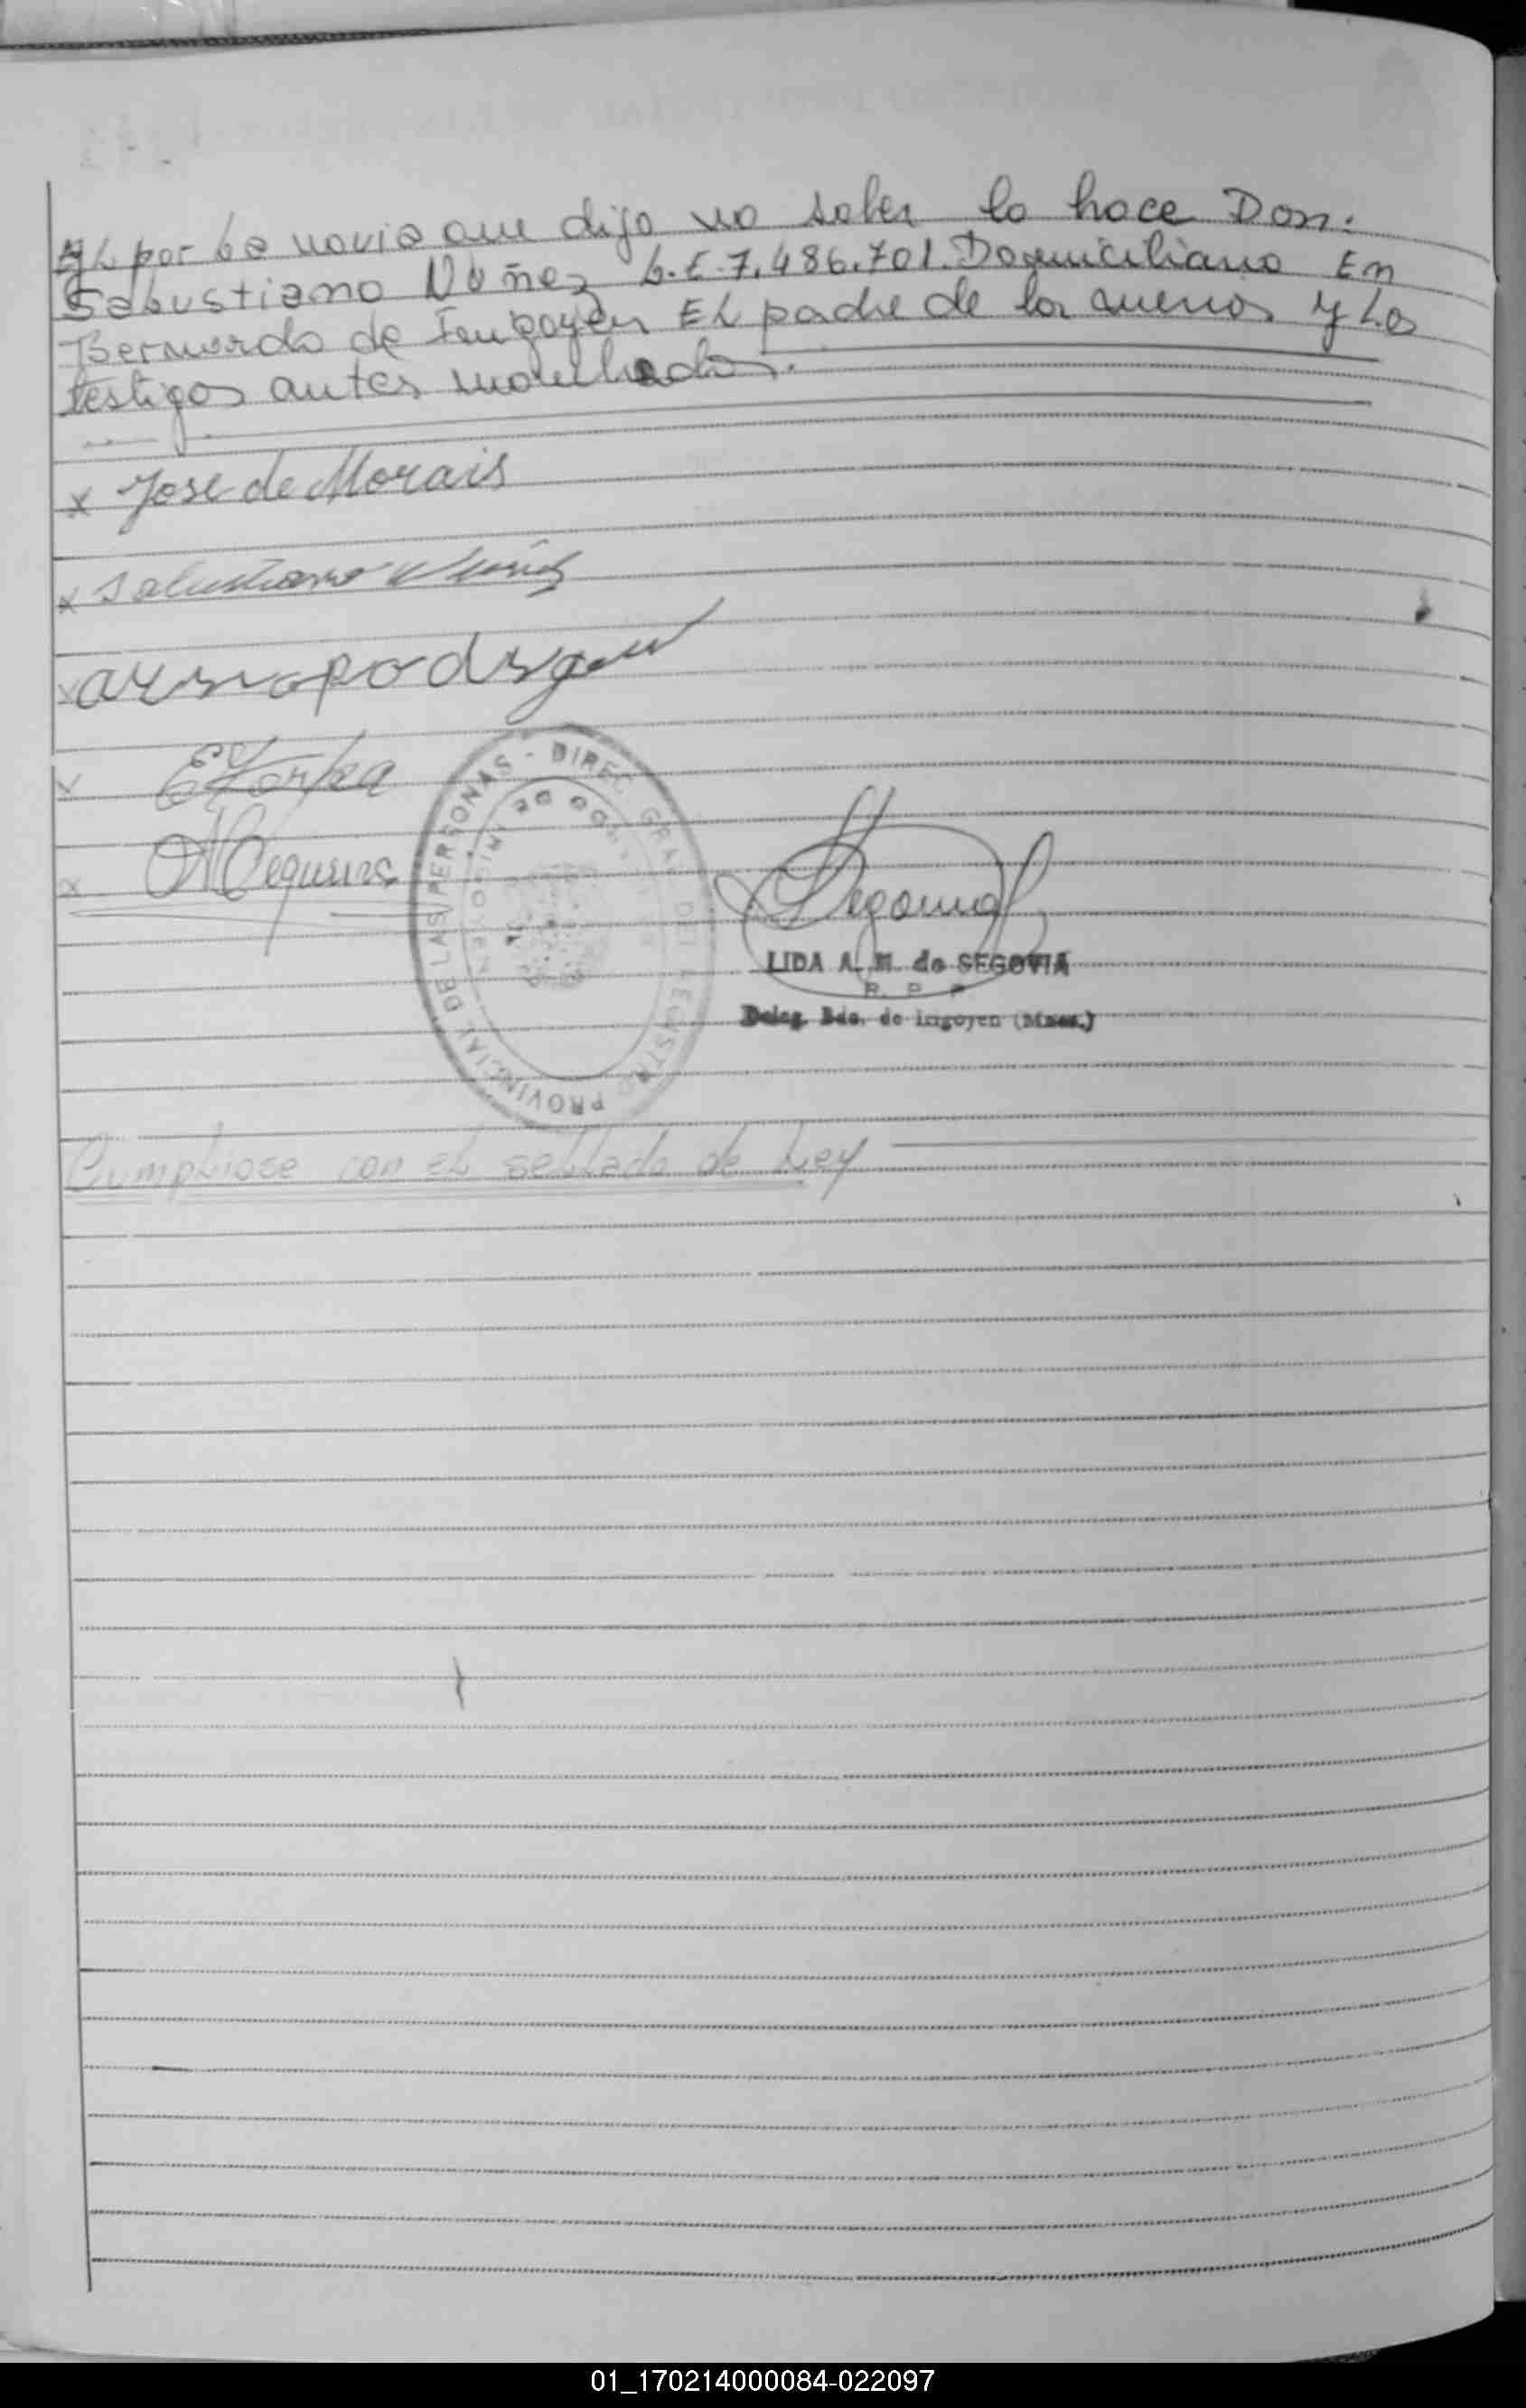 por la novia que dijo no saber lo hace Don:
Salustiano Núñez L.E. 7.486.701. Domiciliario En
Bernardo de Irigoyen EL padre de los menos y Los
testigos antes nombrados.
x Jose de Morais
x Salustiano Nuñez
x
x
x A Cequeira
PROVINCIAL DE LAS PERSONAS - DIREC. GRAL. DEL REGISTRO
Segovia
LIDA A. M. de SEGOVIA
R. P. P.
Deleg. Bdo. de Irigoyen (Mnes.)
Cumpliose con el sellado de Ley
01_170214000084-022097